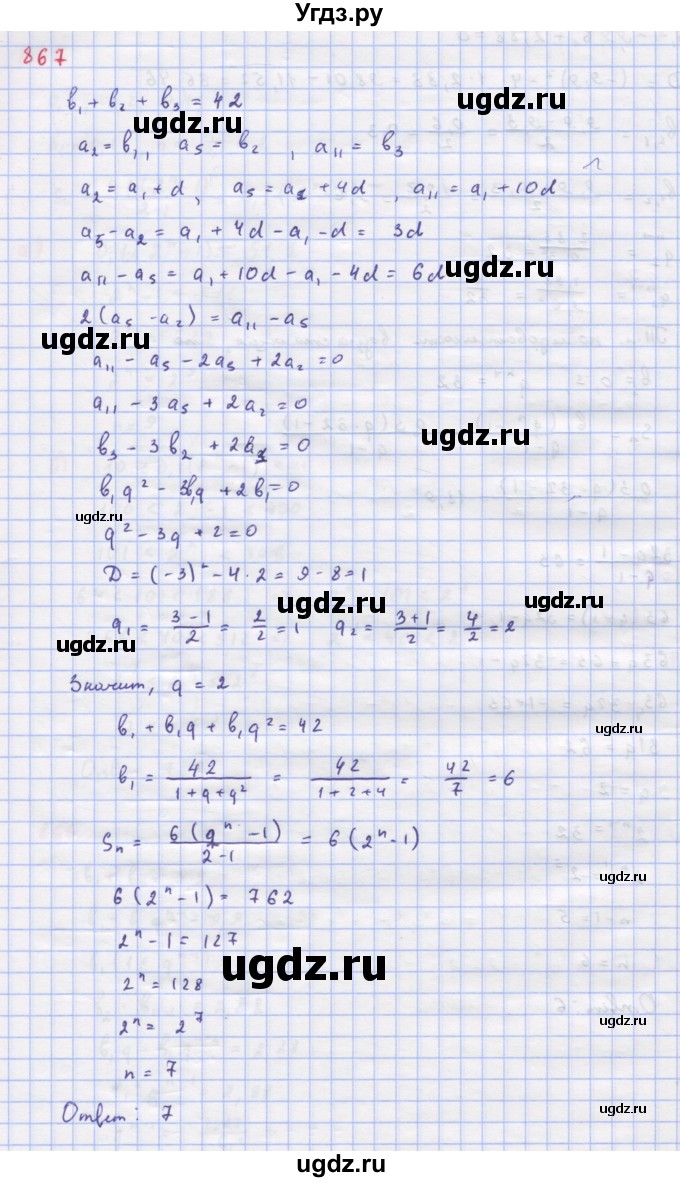 Угдз.ру
867
b₁ + b₂ + b₃ = 42
ugdz.ru ugdz.ru
a₂ = b₁, a₅ = b₂, a₁₁ = b₃
a₂ = a₁ + d, a₅ = a₁ + 4d, a₁₁ = a₁ + 10d
a₅ - a₂ = a₁ + 4d - a₁ - d = 3d
a₁₁ - a₅ = a₁ + 10d - a₁ - 4d = 6d
ugdz.ru
2(a₅ - a₂) = a₁₁ - a₅
ugdz.ru
a₁₁ - a₅ - 2a₅ + 2a₂ = 0
a₁₁ - 3a₅ + 2a₂ = 0
ugdz.ru
b₃ - 3b₂ + 2b₁ = 0
b₁q² - 3b₁q + 2b₁ = 0
ugdz.ru
q² - 3q + 2 = 0
D = (-3)² - 4 · 2 = 9 - 8 = 1
ugdz.ru ugdz.ru
q₁ = (3 - 1)/2 = 2/2 = 1 q₂ = (3 + 1)/2 = 4/2 = 2
ugdz.ru
Значит, q = 2
b₁ + b₁q + b₁q² = 42
ugdz.ru
b₁ = 42/(1 + q + q²) = 42/(1 + 2 + 4) = 42/7 = 6
Sₙ = 6(qⁿ - 1)/(2 - 1) = 6(2ⁿ - 1)
ugdz.ru
6(2ⁿ - 1) = 762
2ⁿ - 1 = 127
ugdz.ru
2ⁿ = 128
2ⁿ = 2⁷
ugdz.ru
n = 7
Ответ: 7
ugdz.ru
ugdz.ru